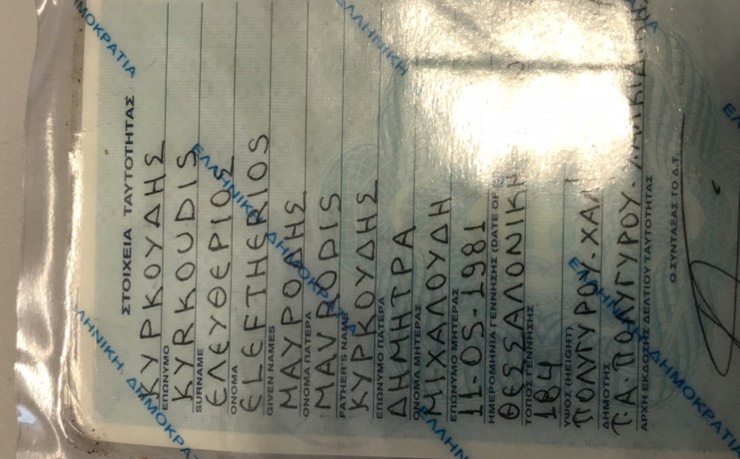 ΕΛΛΗΝΙΚΗ ΔΗΜΟΚΡΑΤΙΑ
ΣΤΟΙΧΕΙΑ ΤΑΥΤΟΤΗΤΑΣ
ΚΥΡΚΟΥΔΗΣ
ΕΠΩΝΥΜΟ
KYRKOUDIS
SURNAME
ΕΛΕΥΘΕΡΙΟΣ
ΟΝΟΜΑ
ELEFTHERIOS
GIVEN NAMES
ΜΑΥΡΟΔΗΣ
ΟΝΟΜΑ ΠΑΤΕΡΑ
MAVRODIS
FATHER'S NAME
ΚΥΡΚΟΥΔΗΣ
ΕΠΩΝΥΜΟ ΠΑΤΕΡΑ
ΔΗΜΗΤΡΑ
ΟΝΟΜΑ ΜΗΤΕΡΑΣ
ΜΙΧΑΛΟΥΔΗ
ΕΠΩΝΥΜΟ ΜΗΤΕΡΑΣ
11-05-1981
ΗΜΕΡΟΜΗΝΙΑ ΓΕΝΝΗΣΗΣ (DATE OF
ΘΕΣΣΑΛΟΝΙΚΗ
ΤΟΠΟΣ ΓΕΝΝΗΣΗΣ
184
ΥΨΟΣ (HEIGHT)
ΠΟΛΥΓΥΡΟΥ-ΧΑΛ
ΔΗΜΟΤΗΣ
Τ.Α. ΠΟΛΥΓΥΡΟΥ
ΑΡΧΗ ΕΚΔΟΣΗΣ ΔΕΛΤΙΟΥ ΤΑΥΤΟΤΗΤΑΣ
Ο ΣΥΝΤΑΞΑΣ ΤΟ Δ.Τ.